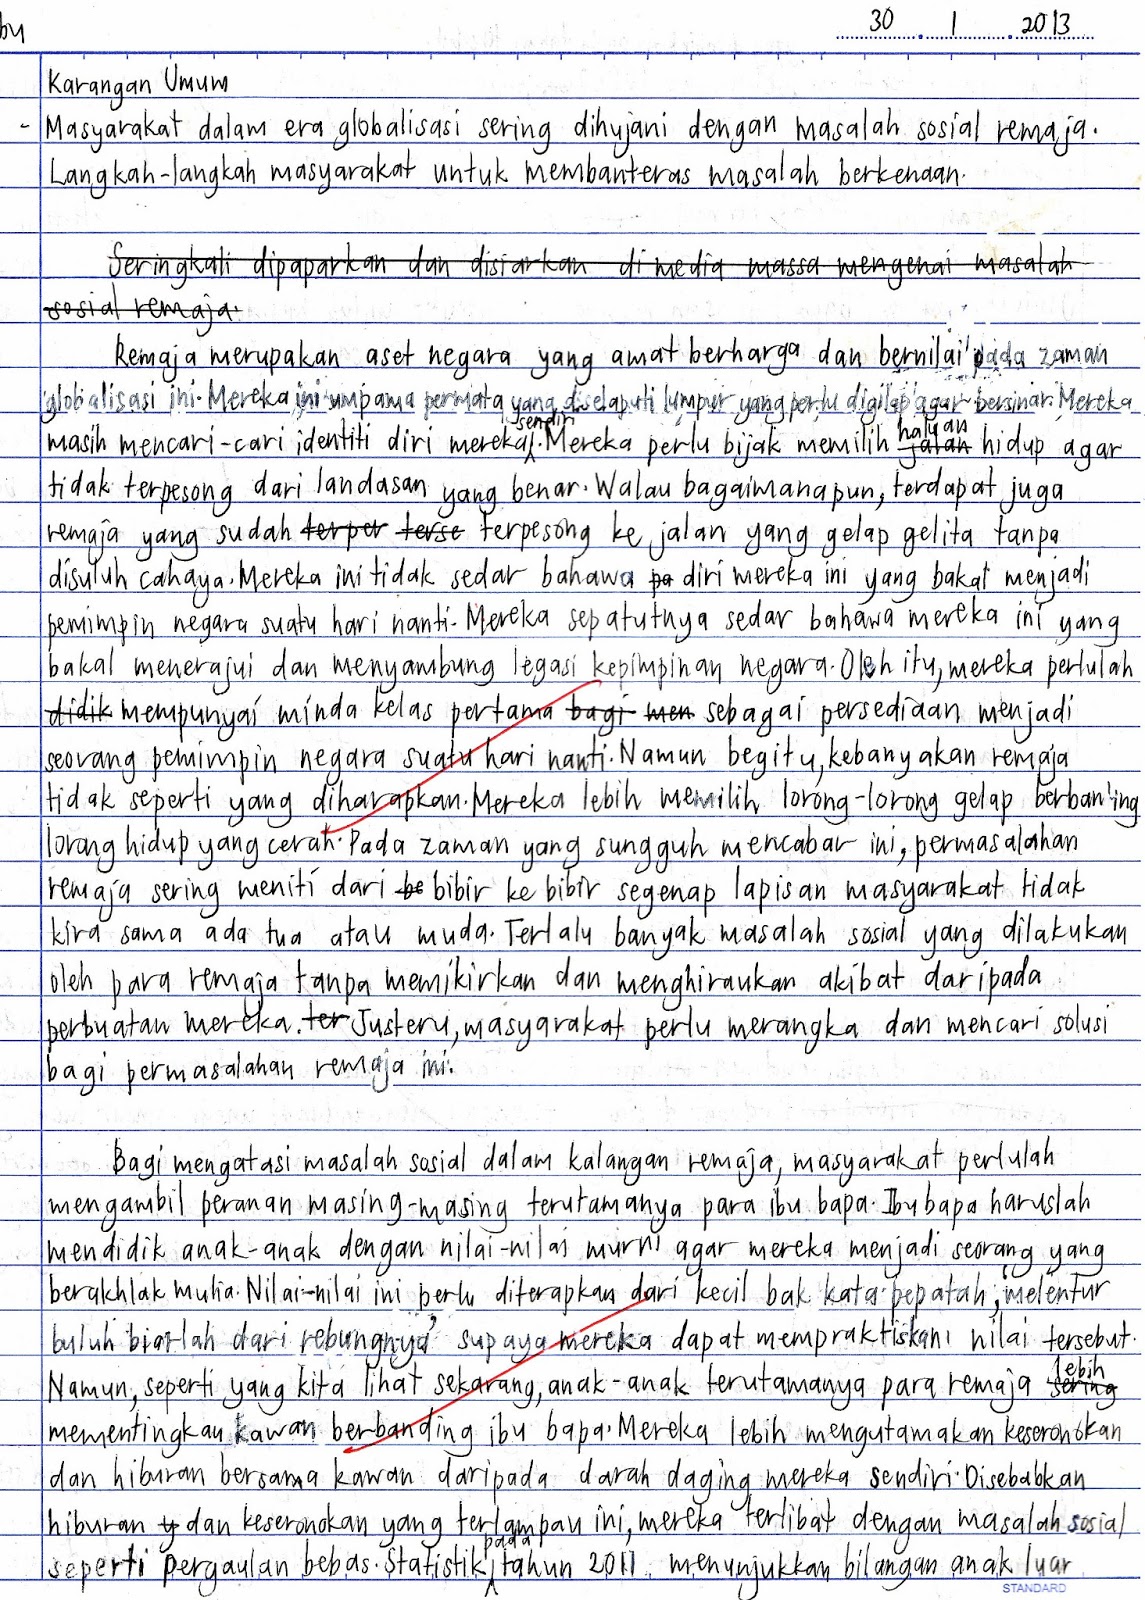 bu
30 . 1 . 2013
Karangan Umum
- Masyarakat dalam era globalisasi sering dihujani dengan masalah sosial remaja.
Langkah-langkah masyarakat untuk membanteras masalah berkenaan.
Seringkali dipaparkan dan disiarkan di media massa mengenai masalah
sosial remaja.
Remaja merupakan aset negara yang amat berharga dan bernilai pada zaman
globalisasi ini. Mereka ini umpama permata yang diselaputi lumpur yang perlu digilap agar bersinar. Mereka
masih mencari-cari identiti diri mereka sendiri. Mereka perlu bijak memilih jalan haluan hidup agar
tidak terpesong dari landasan yang benar. Walau bagaimanapun, terdapat juga
remaja yang sudah terper terse terpesong ke jalan yang gelap gelita tanpa
disuluh cahaya. Mereka ini tidak sedar bahawa pa diri mereka ini yang bakal menjadi
pemimpin negara suatu hari nanti. Mereka sepatutnya sedar bahawa mereka ini yang
bakal menerajui dan menyambung legasi kepimpinan negara. Oleh itu, mereka perlulah
didik mempunyai minda kelas pertama bagi men sebagai persediaan menjadi
seorang pemimpin negara suatu hari nanti. Namun begitu, kebanyakan remaja
tidak seperti yang diharapkan. Mereka lebih memilih lorong-lorong gelap berbanding
lorong hidup yang cerah. Pada zaman yang sungguh mencabar ini, permasalahan
remaja sering meniti dari be bibir ke bibir segenap lapisan masyarakat tidak
kira sama ada tua atau muda. Terlalu banyak masalah sosial yang dilakukan
oleh para remaja tanpa memikirkan dan menghiraukan akibat daripada
perbuatan mereka. ter Justeru, masyarakat perlu merangka dan mencari solusi
bagi permasalahan remaja ini.
Bagi mengatasi masalah sosial dalam kalangan remaja, masyarakat perlulah
mengambil peranan masing-masing terutamanya para ibu bapa. Ibu bapa haruslah
mendidik anak-anak dengan nilai-nilai murni agar mereka menjadi seorang yang
berakhlak mulia. Nilai-nilai ini perlu diterapkan dari kecil bak kata pepatah, 'melentur
buluh biarlah dari rebungnya' supaya mereka dapat mempraktiskani nilai tersebut.
Namun, seperti yang kita lihat sekarang, anak-anak terutamanya para remaja sering lebih
mementingkan kawan berbanding ibu bapa. Mereka lebih mengutamakan keseronokan
dan hiburan bersama kawan daripada darah daging mereka sendiri. Disebabkan
hiburan y dan keseronokan yang terlampau ini, mereka terlibat dengan masalah sosial
seperti pergaulan bebas. Statistik pada tahun 2011 menunjukkan bilangan anak luar
STANDARD